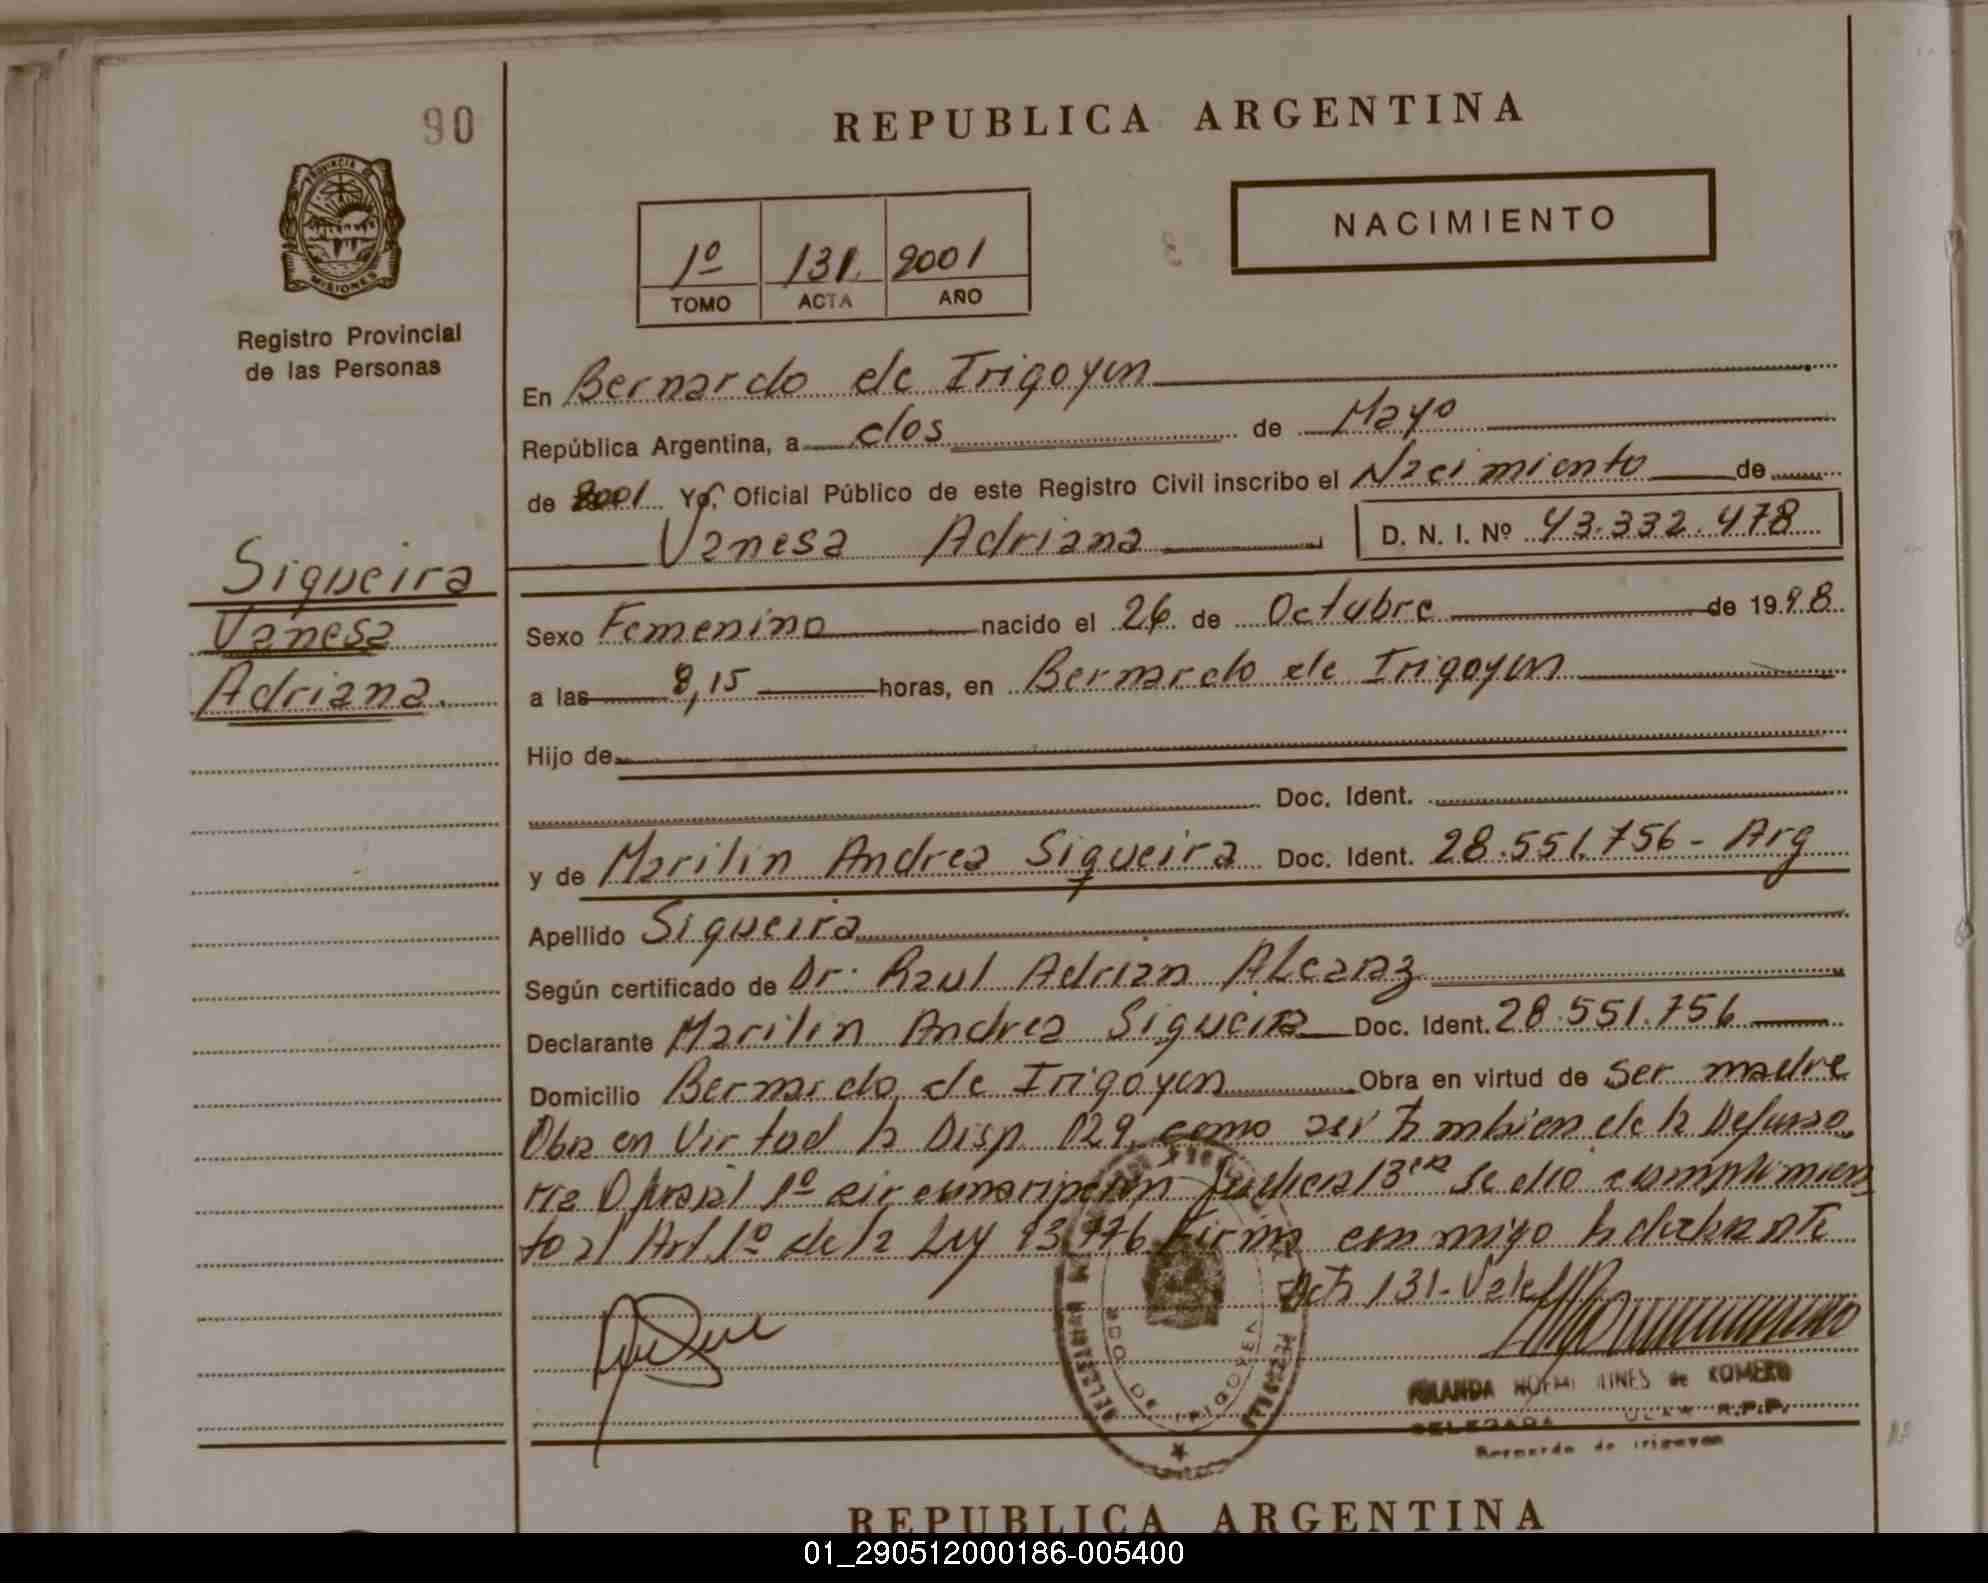 90
REPUBLICA ARGENTINA
PROVINCIA DE
MISIONES
Registro Provincial
de las Personas
1º 131 2001
TOMO ACTA AÑO
NACIMIENTO
En Bernardo de Irigoyen
República Argentina, a dos de Mayo
de 2001 Yo, Oficial Público de este Registro Civil inscribo el Nacimiento de
Vanesa Adriana D. N. I. Nº 43.332.478
Siqueira
Vanesa
Adriana.
Sexo Femenino nacido el 26 de Octubre de 1998
a las 8,15 horas, en Bernardo de Irigoyen
Hijo de
Doc. Ident.
y de Marilin Andrea Siqueira Doc. Ident. 28.551.756 - Arg
Apellido Siqueira
Según certificado de Dr. Raul Adrian Alcaraz
Declarante Marilin Andrea Siqueira Doc. Ident. 28.551.756
Domicilio Bernardo de Irigoyen Obra en virtud de Ser madre
Obra en Virtud la Disp. 029, como asi tambien de la Defenso
ria Oficial 1º circunscripcion Judicial 3era Se dio cumplimien
to al Art. 1º de la Ley 23.776 Firma conmigo la declarante
Acta 131 - Vale
BDO. DE IRIGOYEN
NOEMI de ROMERO
DELEGADA R.P.P.
Bernardo de Irigoyen
REPUBLICA ARGENTINA
01_290512000186-005400